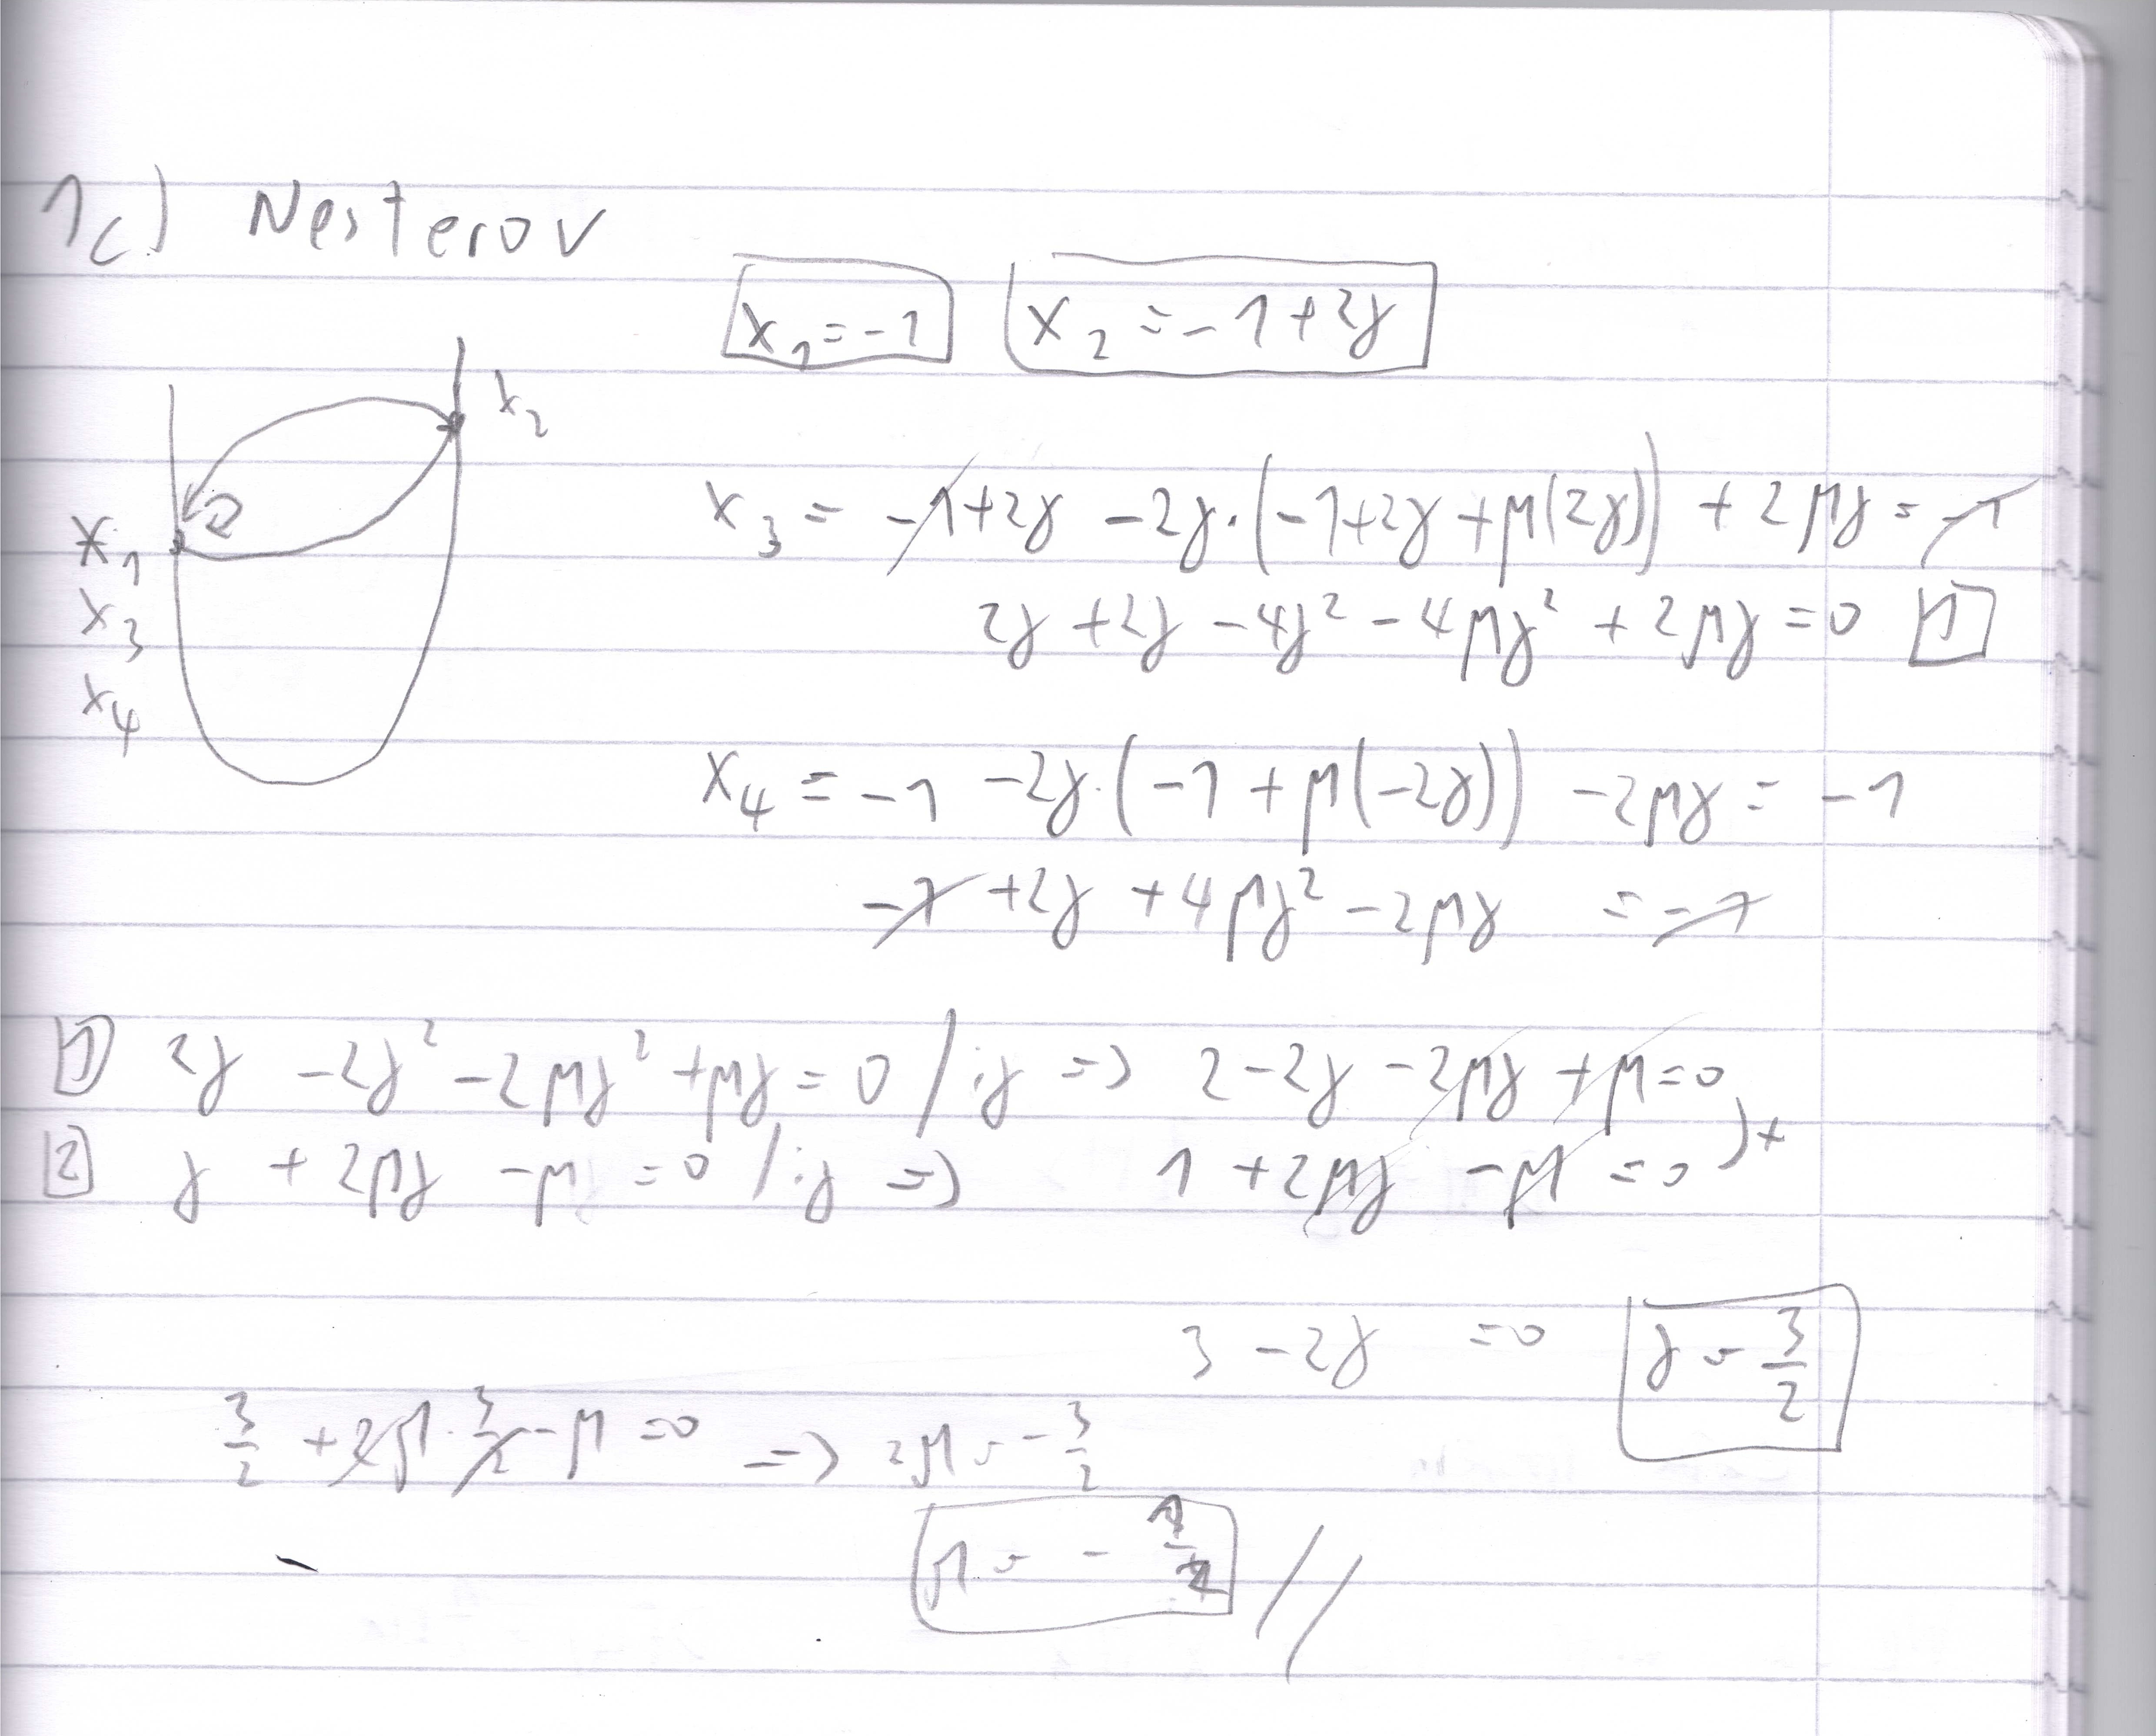 1c) Nesterov
x₁ = -1 x₂ = -1 + 2γ
x₂
x₃ = -1 + 2γ - 2γ·(-1 + 2γ + μ(2γ)) + 2μγ = -1
x₁
2γ + 2γ - 4γ² - 4μγ² + 2μγ = 0 1
x₃
x₄
x₄ = -1 - 2γ·(-1 + μ(-2γ)) - 2μγ = -1
-1 + 2γ + 4μγ² - 2μγ = -1
1 2γ - 2γ² - 2μγ² + μγ = 0 / :γ => 2 - 2γ - 2μγ + μ = 0
2 γ + 2μγ - μ = 0 / :γ => 1 + 2μγ - μ = 0 )+
3 - 2γ = 0 γ = 3/2
3/2 + 2μ·3/2 - μ = 0 => 2μ = -3/2
μ = -